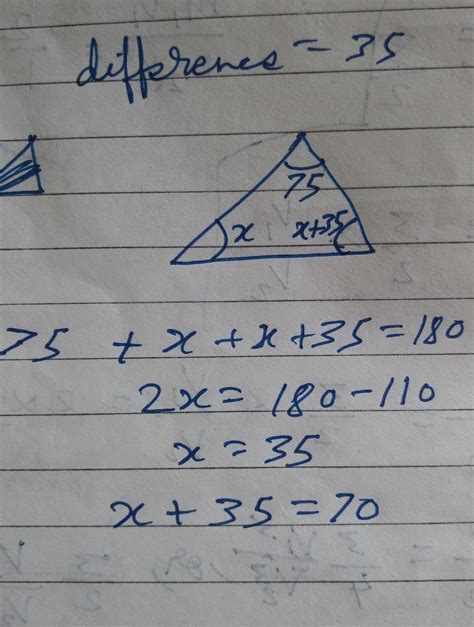 differenes = 35
75
x
x+35
75 + x + x + 35 = 180
2x = 180 - 110
x = 35
x + 35 = 70